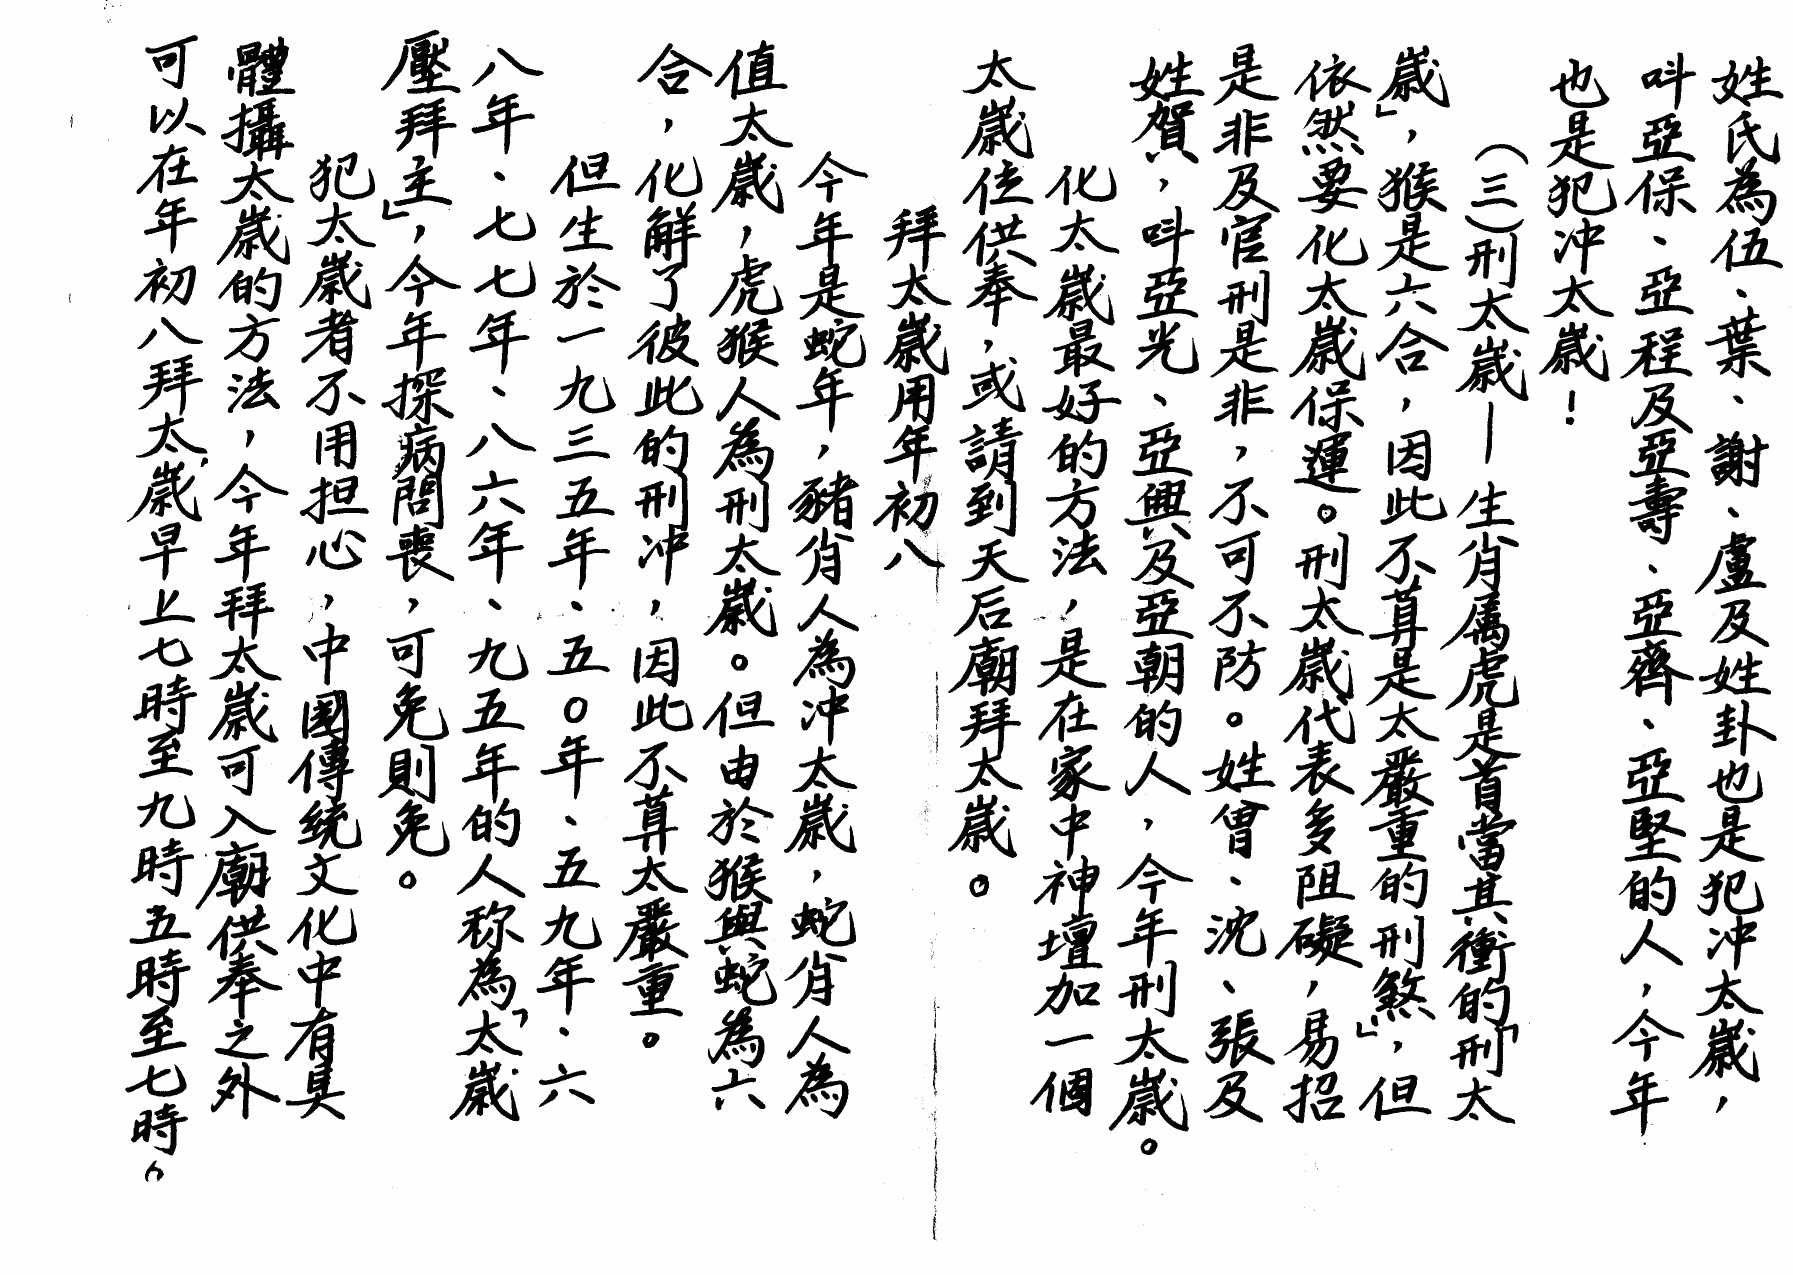 姓氏為伍、葉、謝、盧及姓卦也是犯冲太歲，
呌亞保、亞程及亞壽、亞齊、亞堅的人，今年
也是犯冲太歲！
（三）刑太歲—生肖属虎是首當其衝的「刑太
歲」，猴是六合，因此不算是太嚴重的刑煞」，但
依然要化太歲保運。刑太歲代表多阻礙，易招
是非及官刑是非，不可不防。姓曾、沈、張及
姓賀，呌亞光、亞興及亞朝的人，今年刑太歲。
化太歲最好的方法，是在家中神壇加一個
太歲位供奉，或請到天后廟拜太歲。
拜太歲用年初八
今年是蛇年，豬肖人為冲太歲，蛇肖人為
值太歲，虎猴人為刑太歲。但由於猴與蛇為六
合，化解了彼此的刑冲，因此不算太嚴重。
但生於一九三五年、五〇年、五九年、六
八年、七七年、八六年、九五年的人称為「太歲
壓拜主」，今年探病問喪，可免則免。
犯太歲者不用担心，中國傳統文化中有具
體攝太歲的方法，今年拜太歲可入廟供奉之外
可以在年初八拜太歲，早上七時至九時五時至七時。